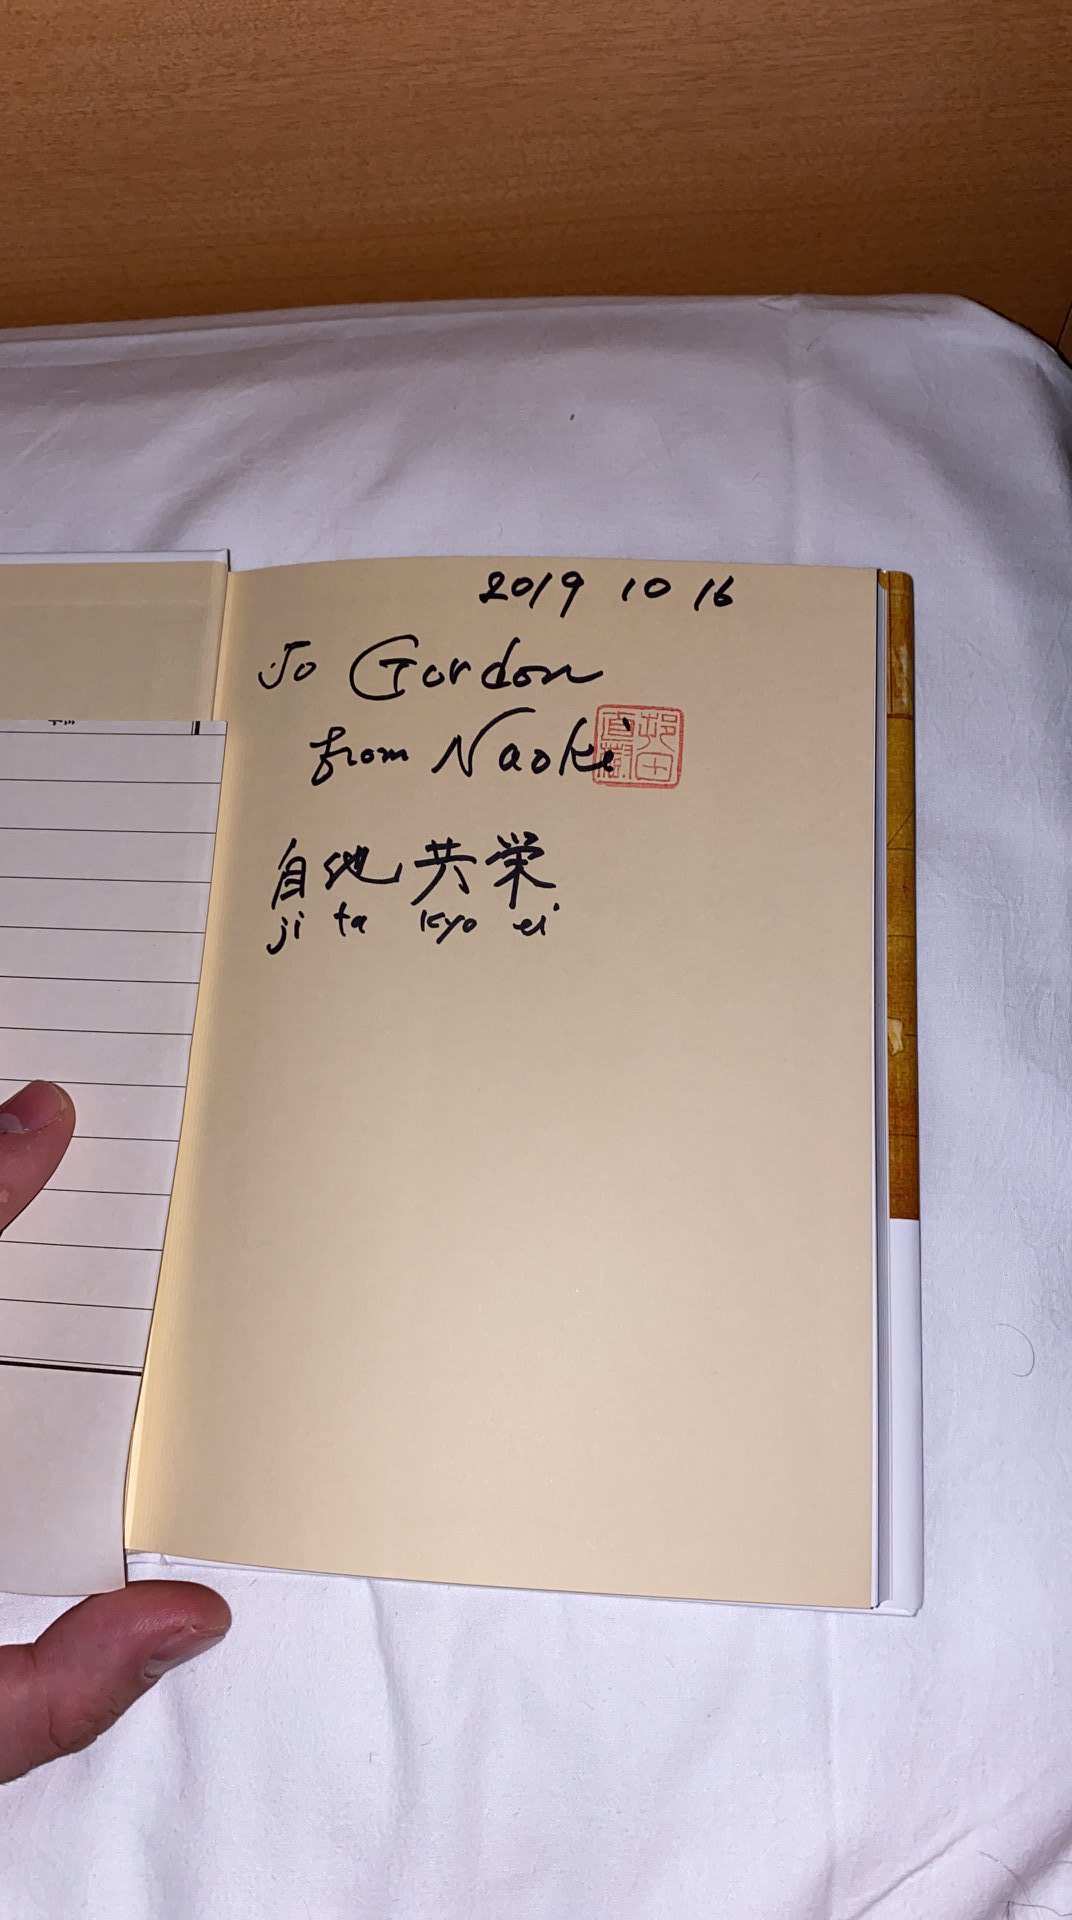 2019 10 16
To Gordon
from Naoki
自他共栄
ji ta kyo ei